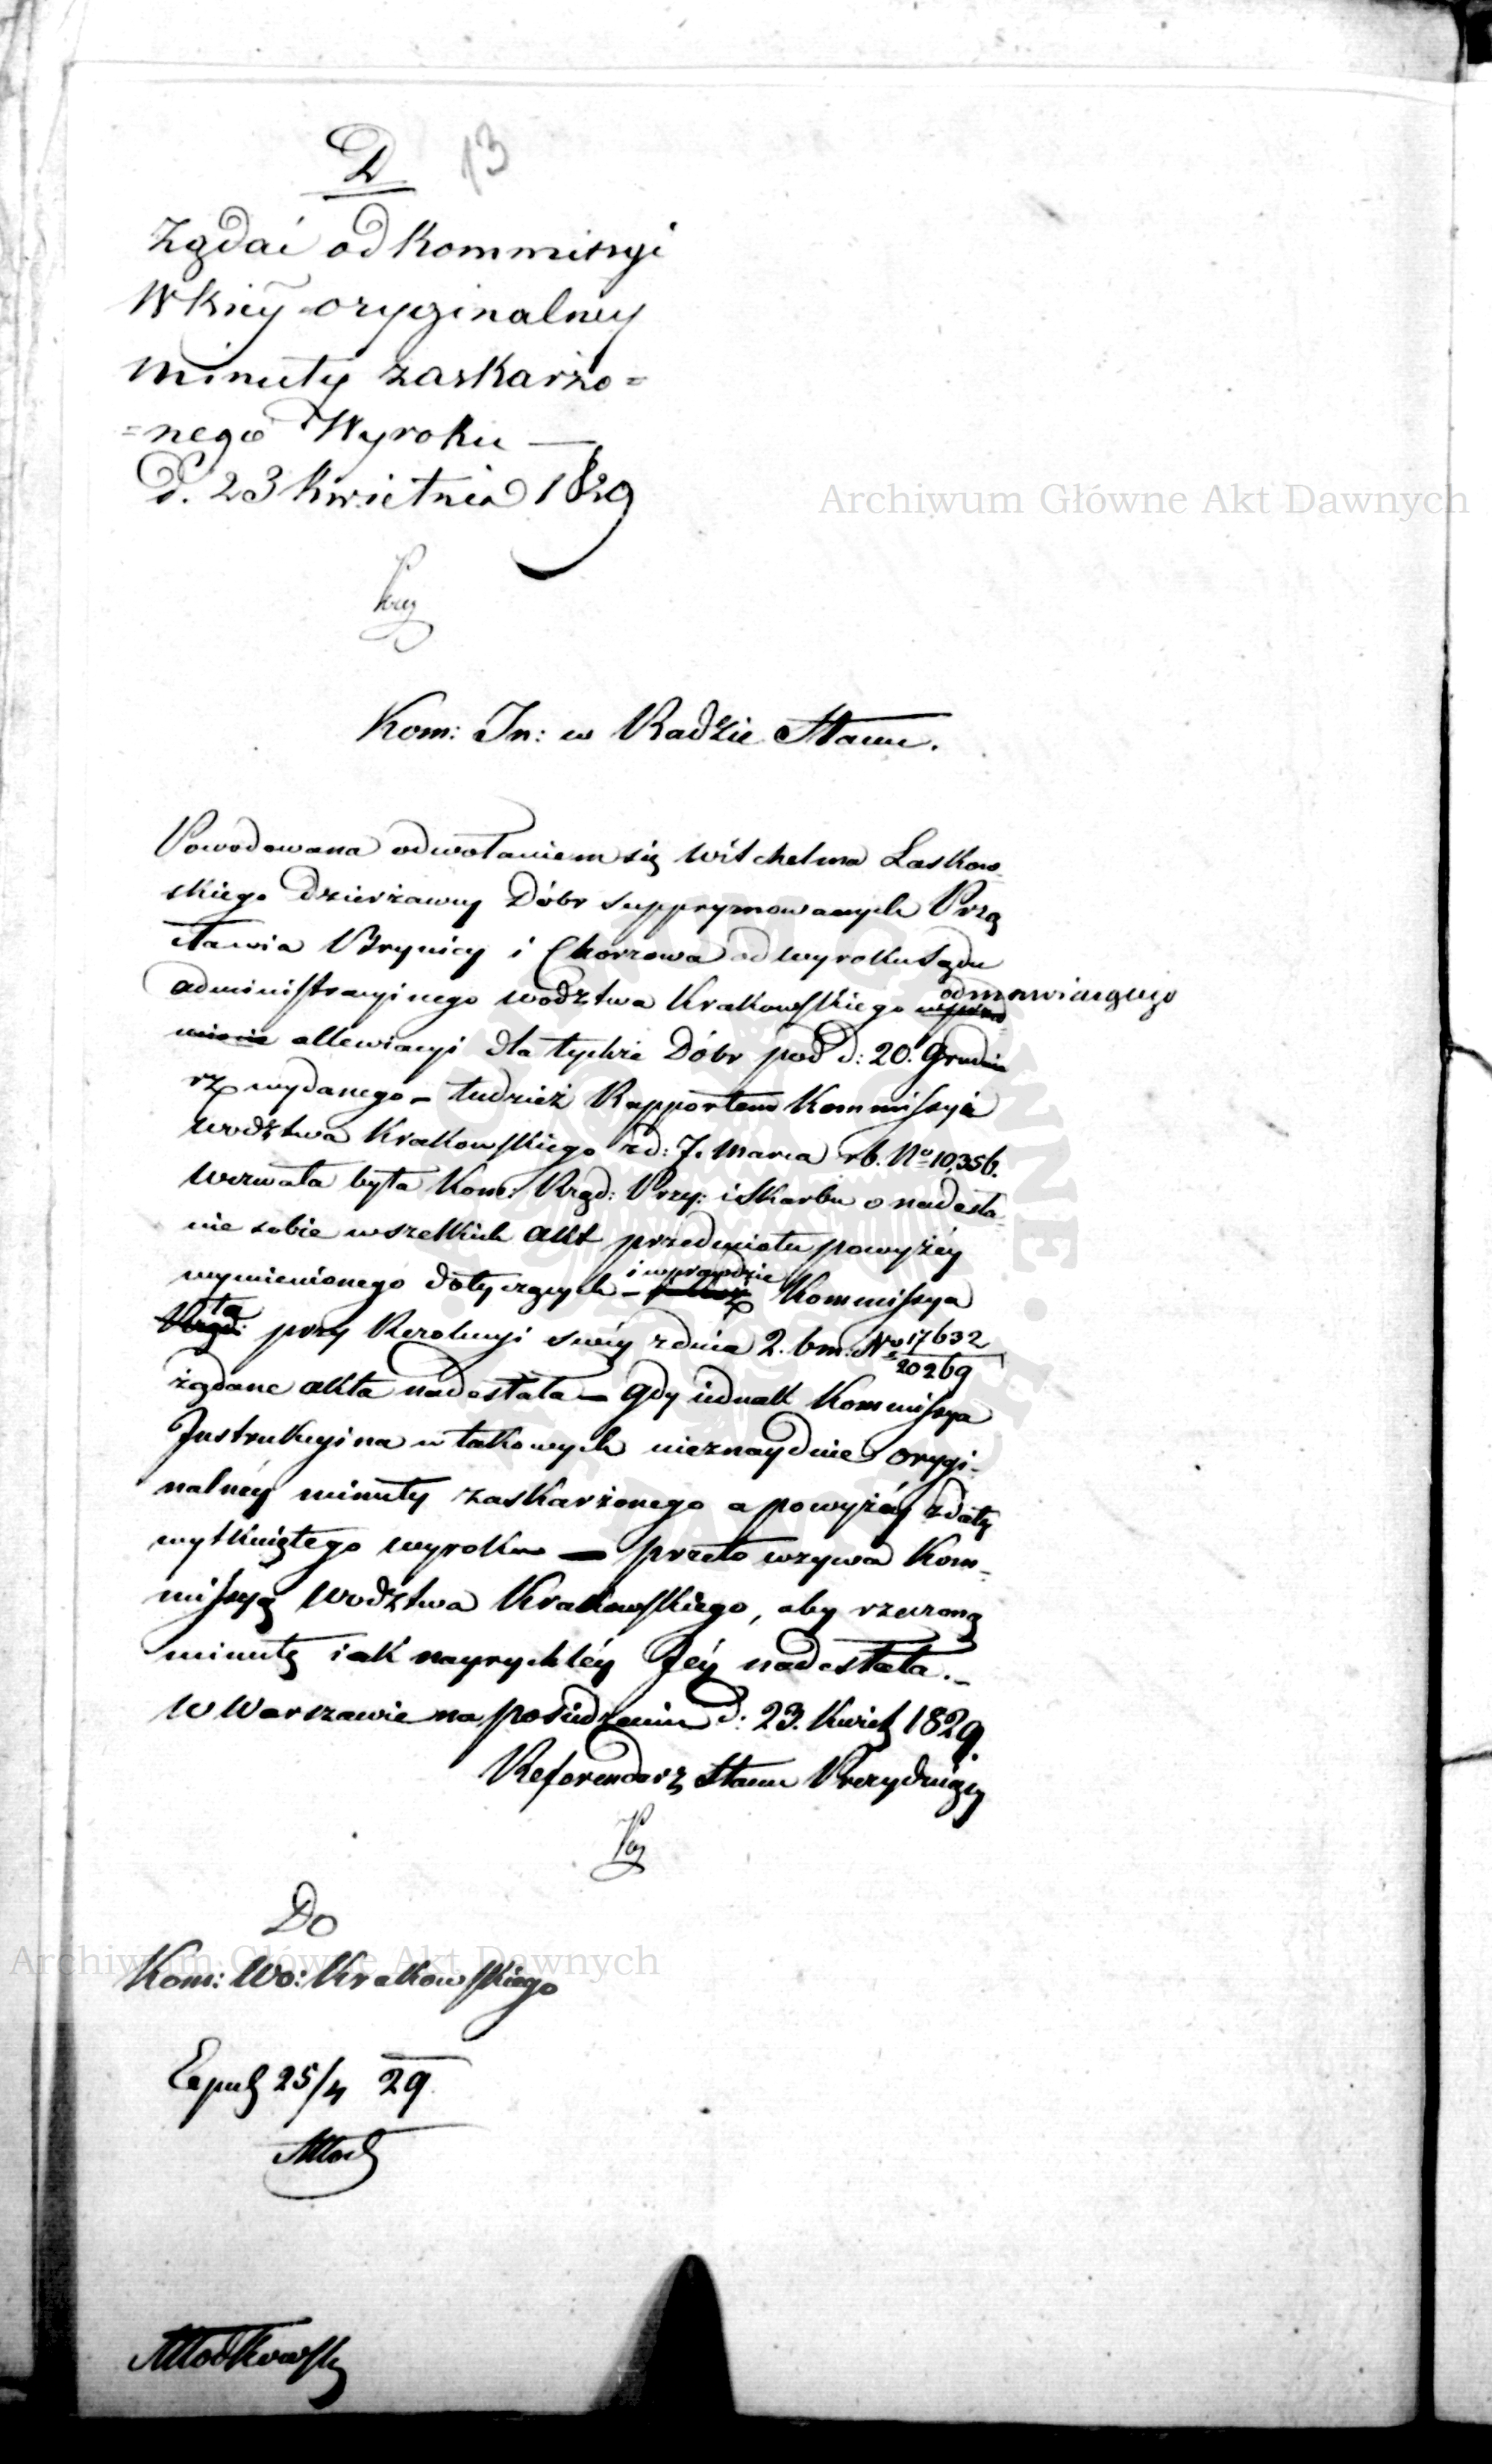 D 13
Żądać od Kommissyi
W Kiéy oryginalney
minuty zaskarżo=
=nego Wyroku —
d. 23 Kwietnia 1829
Archiwum Główne Akt Dawnych
Kom: In: w Radzie Stanu.
Powodowana odwołaniem się Wilchelma Laskow
skiego Dzierżawcy Dóbr suppprymowanych Prze
sławia Brynicy i Chorzowa od wyroku Sądu
administracyinego wodztwa Krakowskiego odmawiaiącego
allewiacyi dla tychże Dóbr pod d: 20. Grudnia
rz wydanego – tudzież Rapportem Kommissyi
wodztwa Krakowskiego z d: 7. Marca rb. No 10,356.
Wezwała była Kom: Rząd: Przy: i Skarbu o nadesła-
nie sobie wszelkich akt przedmiotu powyżéy
wymienionego dotyczących – i wprawdzie Kommissya
ta przy Rezolucyi swéy z dnia 2. bm. No 17632/20269
żądane akta nadesłała – Gdy iednak Kommissya
Instrukcyina w takowych nieznayduie orygi-
nalnéy minuty zaskarżonego a powyżéy z daty
wytkniętego wyroku — przeto wzywa Kom-
missyą Wodztwa Krakowskiego, aby rzeczoną
minutę iak nayrychléy Jéy nadesłała.–
W Warszawie na posiedzeniu d: 23. Kwiet 1829.
Referendarz Stanu Prezyduiący
Do
Archiwum Główne Akt Dawnych
Kom: Wo: Krakowskiego
25/4 29
Młod
Młodkowski